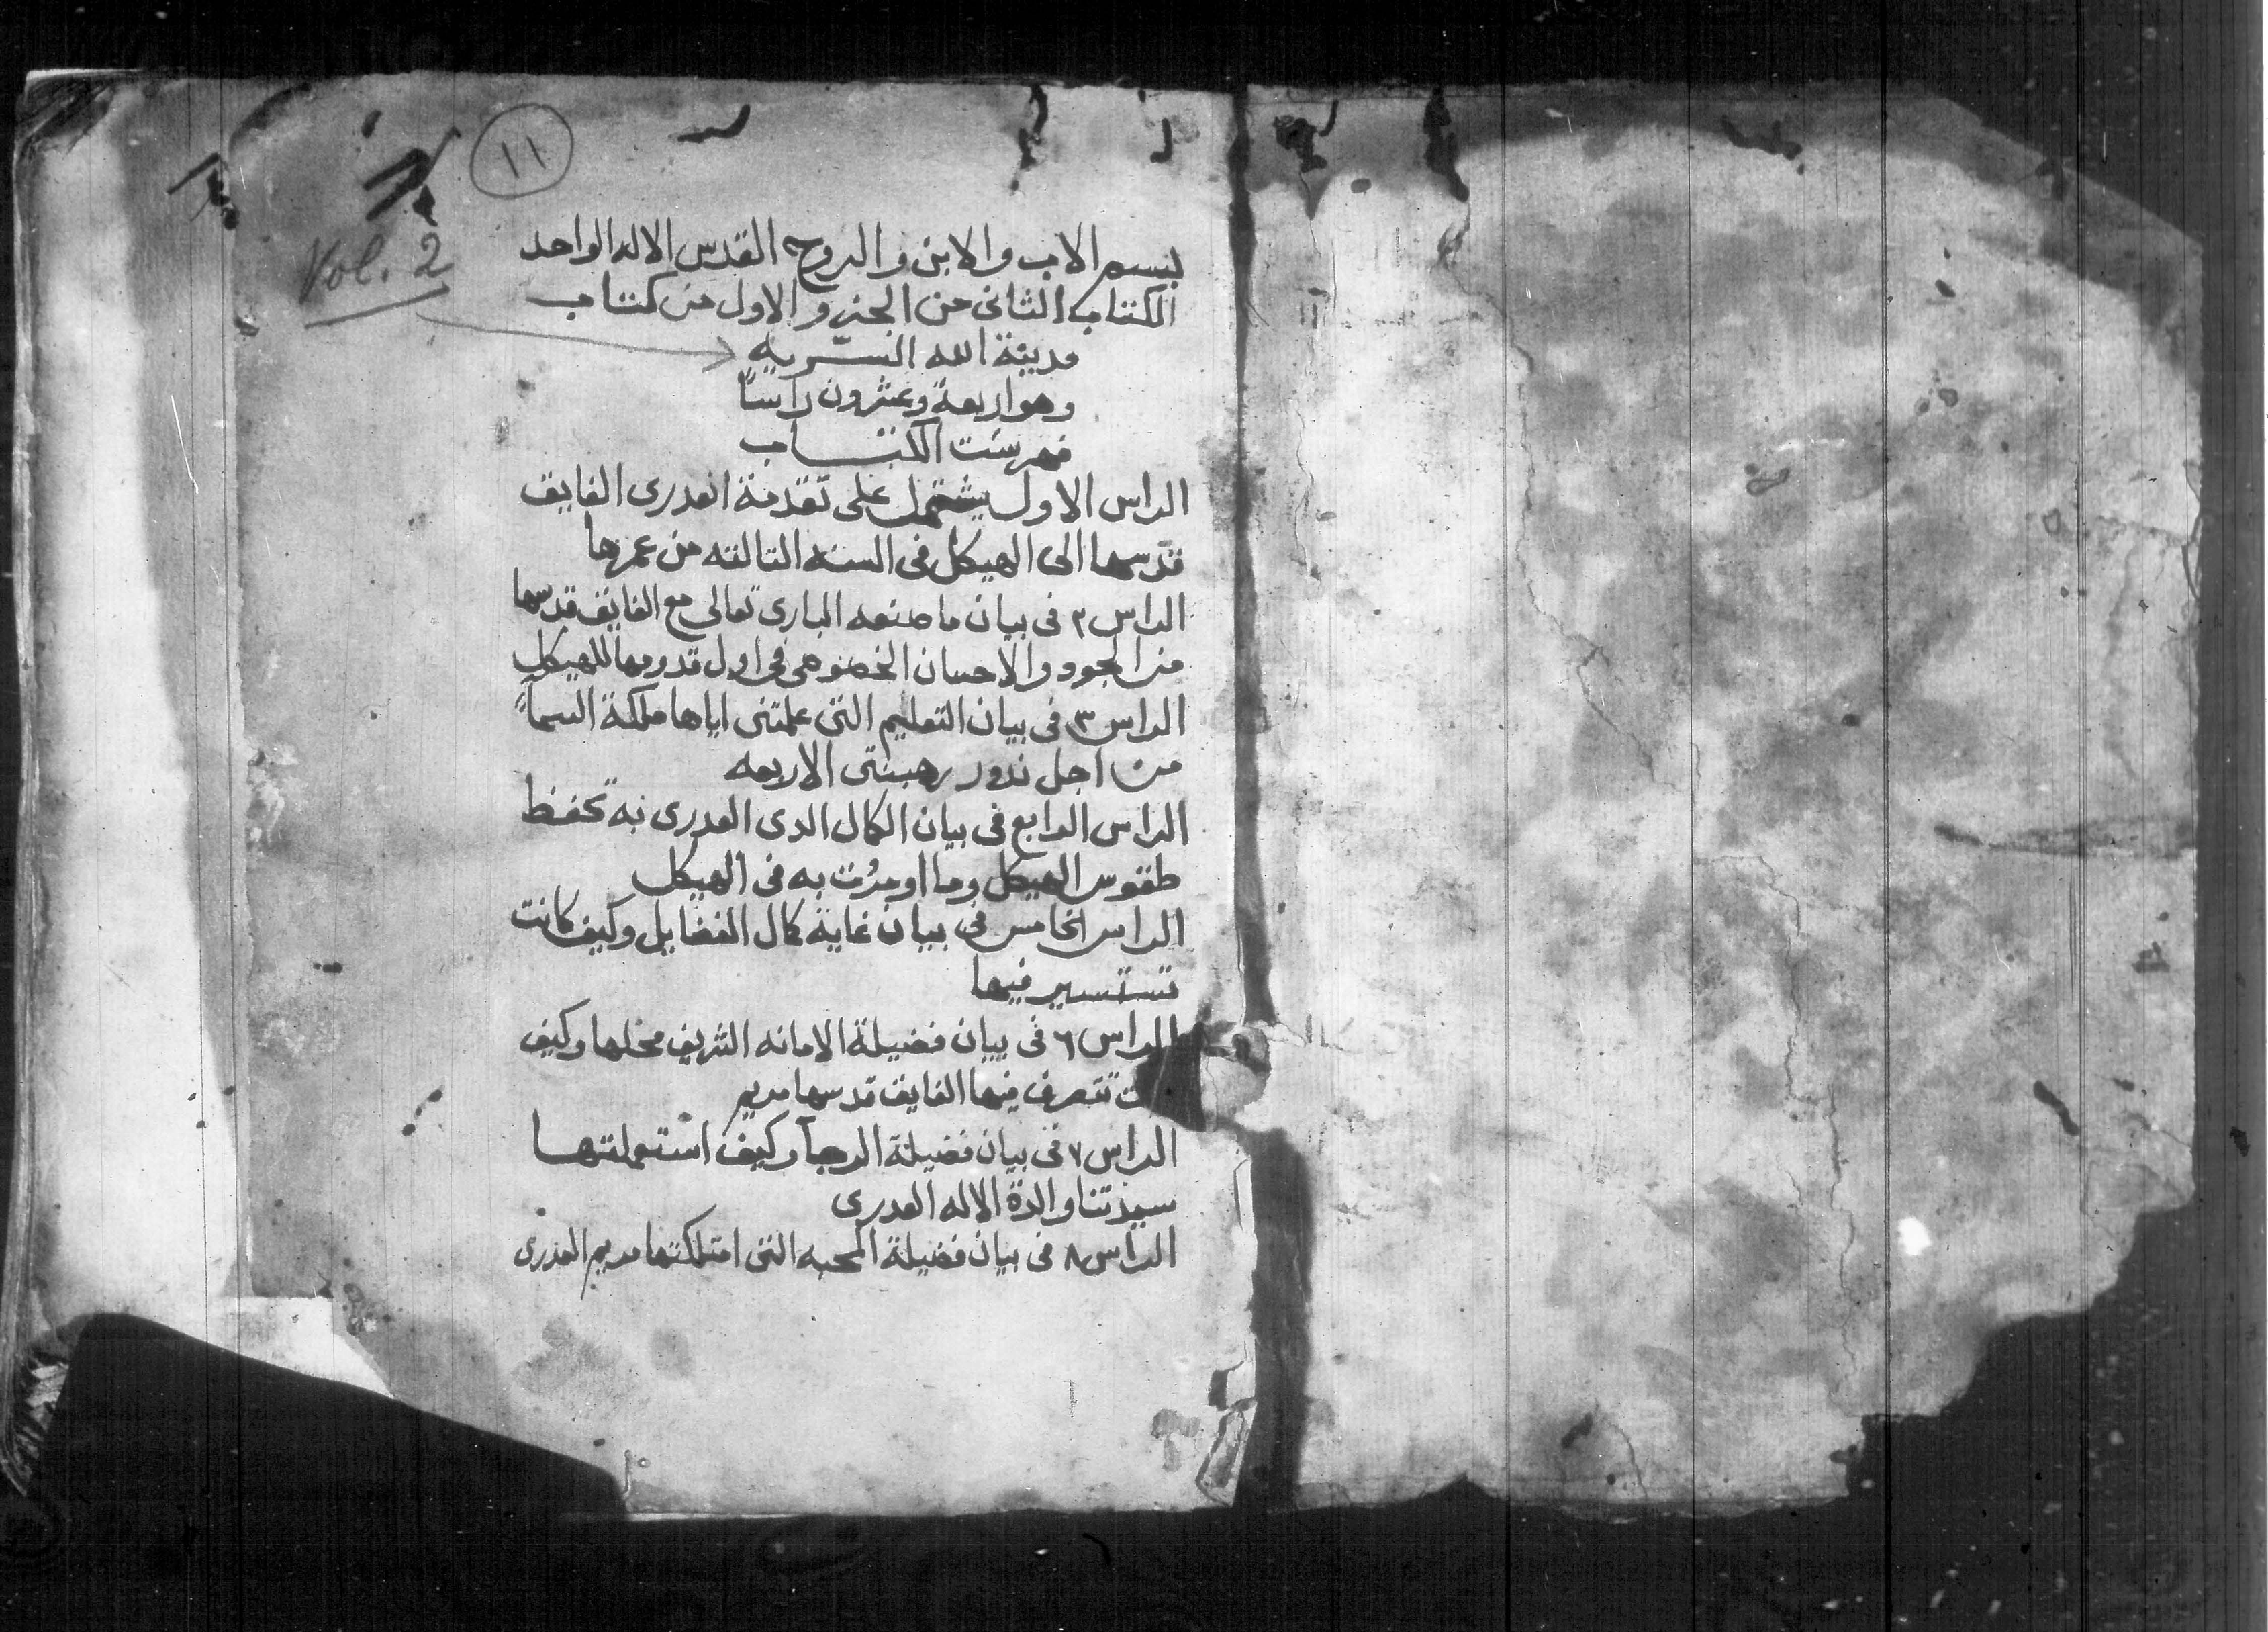 ١١
Vol. 2
بسم الاب والابن والروح القدس الاله الواحد
الكتاب الثانى من الجزو الاول من كتاب
مدينة الله السّريه
وهو اربعة وعشرون راساً
فهرست الكتاب
الراس الاول يشتمل على تقدمة العدرى الفايق
قدسها الى الهيكل فى السنه التالته من عمرها
الراس ٢ فى بيان ما صنعه البارى تعالى مع الفايق قدسها
من الجود والاحسان الخصوصى فى اول قدومها للهيكل
الراس ٣ فى بيان التعليم التى علمتنى اياها ملكة السمآ
من اجل ندور رهبنتى الاربعه
الراس الرابع فى بيان الكمال الدى العدرى به تحفظ
طقوس الهيكل وما اومرت به فى الهيكل
الراس الخامس فى بيان غاية كمال الفضايل وكيف كانت
تستسير فيها
الراس ٦ فى بيان فضيلة الامانه الشريف محلها وكيف
ت تتصرف فيها الفايق قدسها مريم
الراس ٧ فى بيان فضيلة الرجآ وكيف استعملتها
سيدتنا والدة الاله العدرى
الراس ٨ فى بيان فضيلة المحبه التى امتلكتها مريم العذرى